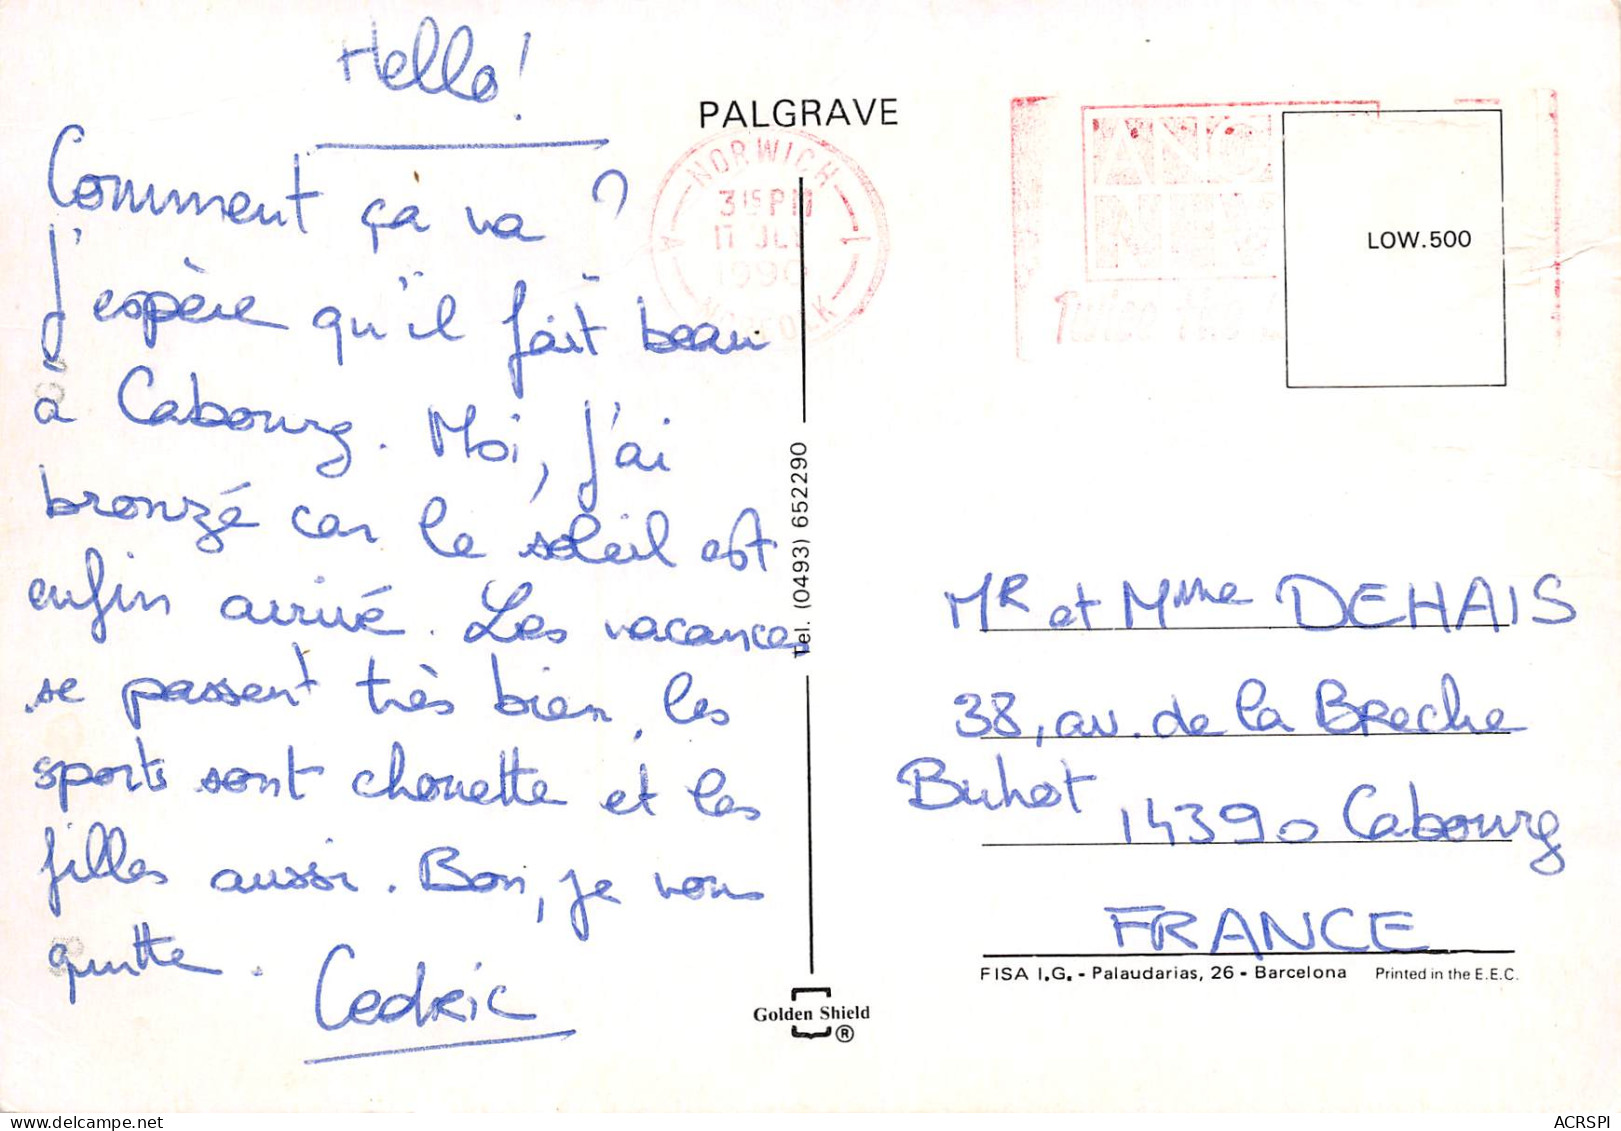 Hello!
Comment ça va ?
J'espère qu'il fait beau
à Cabourg. Moi, j'ai
bronzé car le soleil est
enfin arrivé. Les vacances
se passent très bien, les
sports sont chouette et les
filles aussi. Bon, je vous
quitte.
Cedric
PALGRAVE
NORWICH
3 15 PM
11 JL
1990
NORFOLK
A
1
Twice the
LOW.500
Tel. (0493) 652290
MR et Mme DEHAIS
38, av. de la Breche
Buhot 14390 Cabourg
FRANCE
FISA I.G. - Palaudarias, 26 - Barcelona Printed in the E.E.C.
Golden Shield
®
ACRSPI